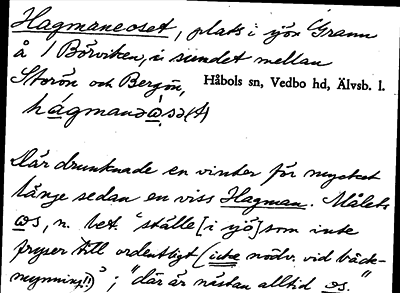 Hagmaneoset, plats i sjön Grann
å / Börviken, i sundet mellan
Storön och Bergön, Håbols sn, Vedbo hd, Älvsb. l.
Där drunknade en vinter för mycket
länge sedan en viss Hagman. Målets
ɷs, n. bet. "ställe [i sjö] som inte
fryser till ordentligt (icke nödv. vid bäck-
mynning!)"; "där är nästan alltid ɷs."